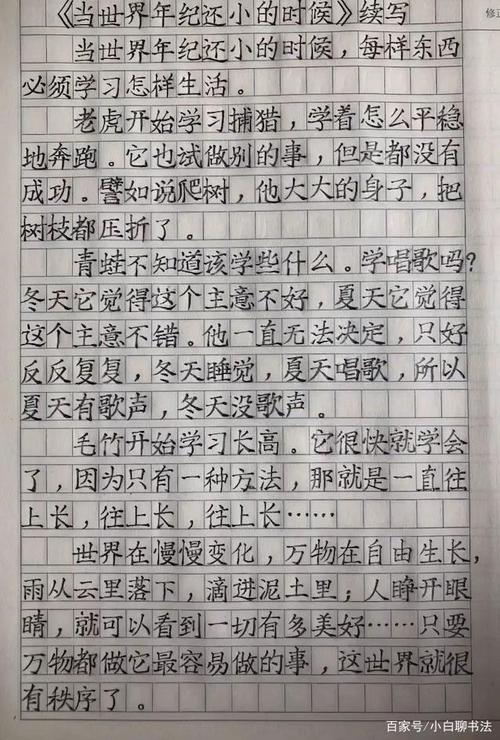 修正
《当世界年纪还小的时候》续写
当世界年纪还小的时候，每样东西
必须学习怎样生活。
老虎开始学习捕猎，学着怎么平稳
地奔跑。它也试做别的事，但是都没有
成功。譬如说爬树，他大大的身子，把
树枝都压折了。
青蛙不知道该学些什么。学唱歌吗？
冬天它觉得这个主意不好，夏天它觉得
这个主意不错。他一直无法决定，只好
反反复复，冬天睡觉，夏天唱歌，所以
夏天有歌声，冬天没歌声。
毛竹开始学习长高。它很快就学会
了，因为只有一种方法，那就是一直往
上长，往上长，往上长……
世界在慢慢变化，万物在自由生长，
雨从云里落下，滴进泥土里；人睁开眼
睛，就可以看到一切有多美好……只要
万物都做它最容易做的事，这世界就很
有秩序了。
百家号/小白聊书法